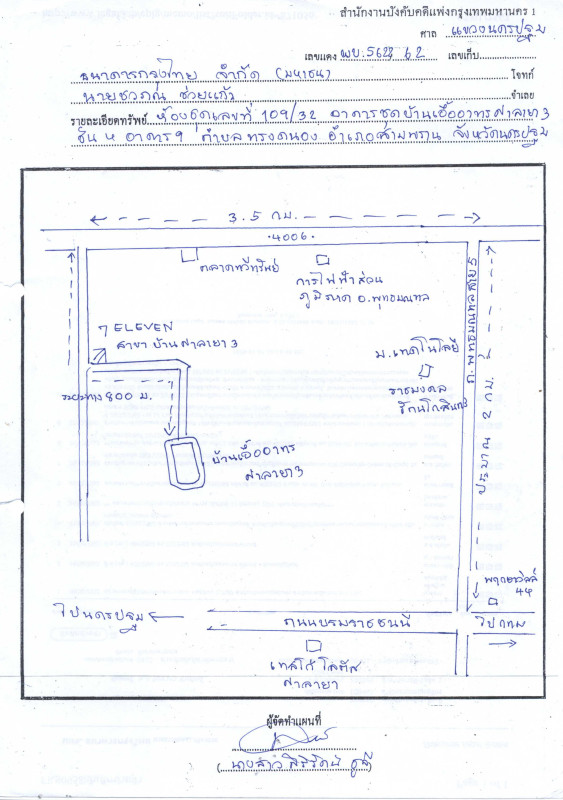 สำนักงานบังคับคดีแพ่งกรุงเทพมหานคร 1
ศาล แขวงนครปฐม
เลขแดง ผบ.5623 62 เลขเก็บ
ธนาคารกรุงไทย จำกัด (มหาชน) โจทก์
นายชวภณ ช่วยแก้ว จำเลย
รายละเอียดทรัพย์ ห้องชุดเลขที่ 109/32 อาคารชุดบ้านเอื้ออาทรศาลายา 3
ชั้น 4 อาคาร 9 ตำบลทรงคนอง อำเภอสามพราน จังหวัดนครปฐม
3.5 กม.
4006
ตลาดทวีทรัพย์
การไฟฟ้าส่วน
ภูมิภาค อ.พุทธมณฑล
ถ.พุทธมณฑลสาย 5
7 ELEVEN
สาขา บ้านศาลายา 3
ม.เทคโนโลยี
ราชมงคล
รัตนโกสินทร์
ระยะทาง 800 ม.
ประมาณ 2 กม.
บ้านเอื้ออาทร
ศาลายา 3
พฤกษาวิลล์
44
ไปนครปฐม
ถนนบรมราชชนนี
ไปกทม
เทสโก้ โลตัส
ศาลายา
ผู้จัดทำแผนที่
(นางสาว )